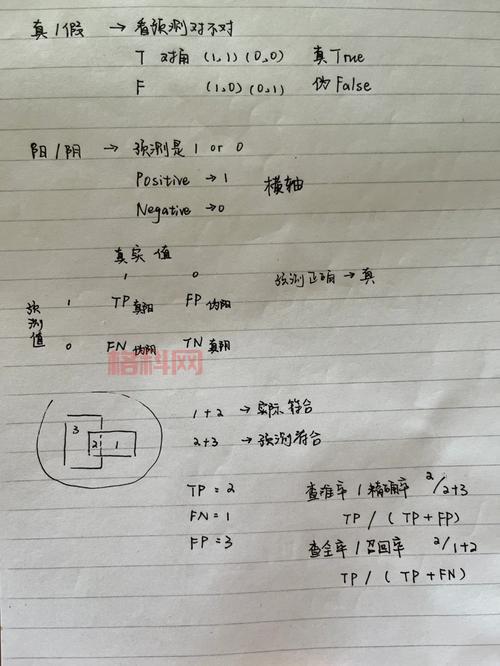 真/假 → 看预测对不对
T 对角 (1,1) (0,0) 真True
F (1,0) (0,1) 伪False
阳/阴 → 预测是 1 or 0
Positive → 1
横轴
Negative → 0
真实值
1 0
预测正确 → 真
预测值
1 TP真阳 FP伪阳
0 FN伪阴 TN真阴
格科网
3 2 1
1+2 → 实际符合
2+3 → 预测符合
TP = 2
FN = 1
FP = 3
查准率/精确率 2/2+3
TP / (TP + FP)
查全率/召回率 2/1+2
TP / (TP + FN)